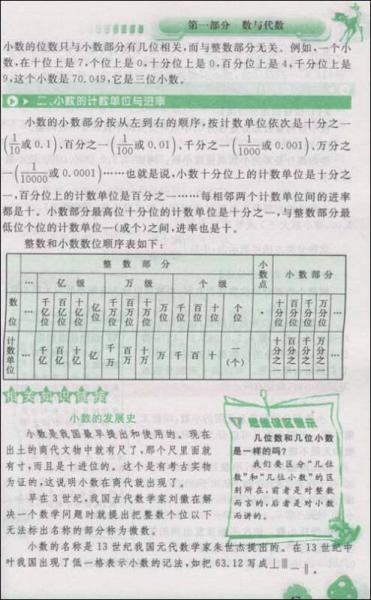 第一部分 数与代数
小数的位数只与小数部分有几位相关,而与整数部分无关。例如,一个小
数,在十位上是7,个位上是0,十分位上是0,百分位上是4,千分位上是
9,这个小数是70.049,它是三位小数。
二、小数的计数单位与进率
小数的小数部分按从左到右的顺序,按计数单位依次是十分之一
(1/10或0.1)、百分之一(1/100或0.01)、千分之一(1/1000或0.001)、万分之
一(1/10000或0.0001)……也就是说,小数十分位上的计数单位是十分之
一,百分位上的计数单位是百分之一……每相邻两个计数单位间的进率
都是十。小数部分最高位十分位的计数单位是十分之一,与整数部分最
低位个位的计数单位一(或个)之间,进率也是十。
整数和小数数位顺序表如下:
整数部分 小数点 小数部分
… 亿级 万级 个级
数位 … 千亿位 百亿位 十亿位 亿位 千万位 百万位 十万位 万位 千位 百位 十位 个位 · 十分位 百分位 千分位 万分位 …
计数单位 … 千亿 百亿 十亿 亿 千万 百万 十万 万 千 百 十 一(个) 十分之一 百分之一 千分之一 万分之一 …
小数的发展史
小数是我国最早提出和使用的。现在
出土的商代文物中就有尺了,那个尺里面就
有寸,而且是十进位的。这个是有考古实物
为证的,这说明小数在商代就出现了。
早在3世纪,我国古代数学家刘徽在解
决一个数学问题时就提出把整数个位以下
无法标出名称的部分称为微数。
小数的名称是13世纪我国元代数学家朱世杰提出的。在13世纪中
叶我国出现了低一格表示小数的记法,如把63.12写成
几位数和几位小数
是一样的吗?
我们要区分“几位
数”和“几位小数”的区
别所在,前者是对整数
而言的,后者是对小数
而讲的。